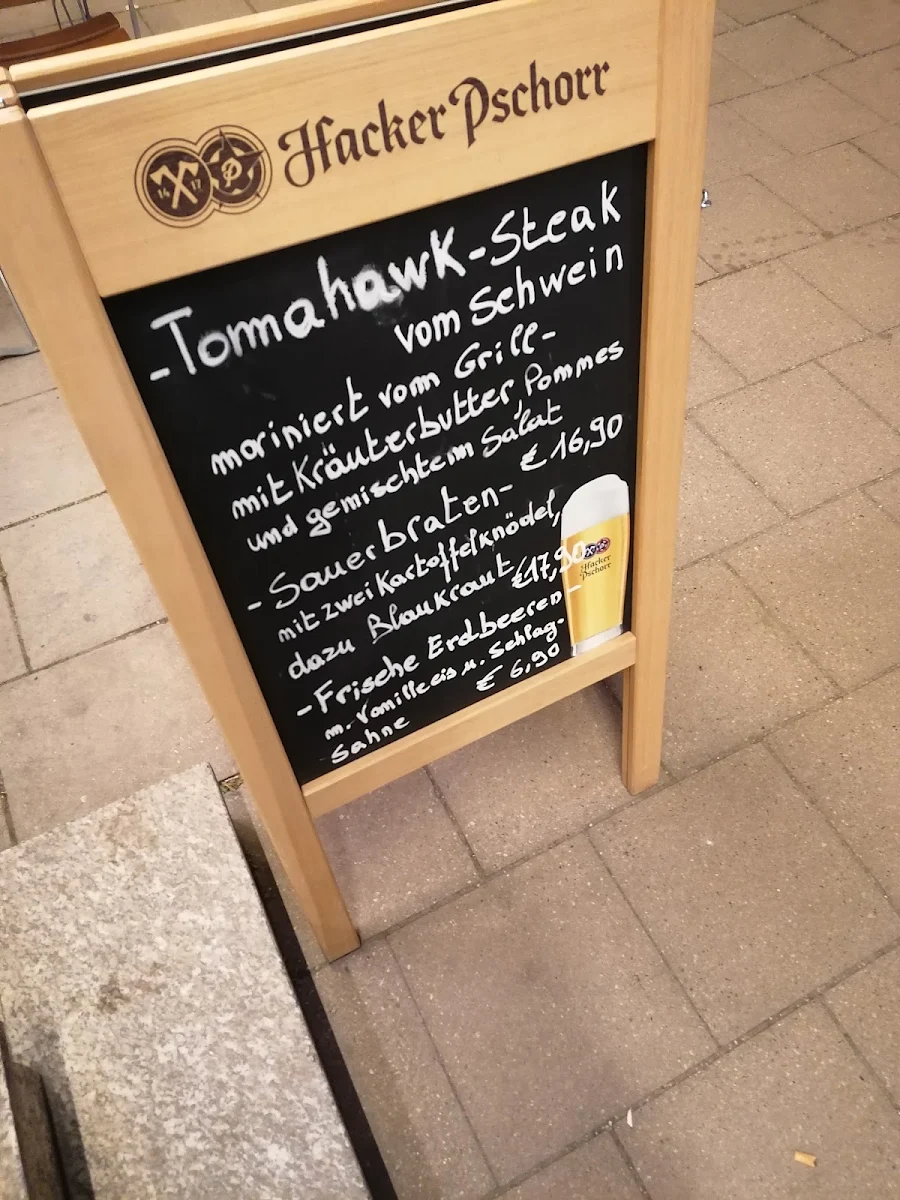 14 17 P Hacker Pschorr
-Tomahawk-Steak
vom Schwein
mariniert vom Grill-
mit Kräuterbutter, Pommes
und gemischtem Salat
€ 16,90
- Sauerbraten-
mit zwei Kartoffelknödel,
dazu Blaukraut €17,90
-Frische Erdbeeren-
m. Vanilleeis u. Schlag-
Sahne € 6,90
Hacker
Pschorr